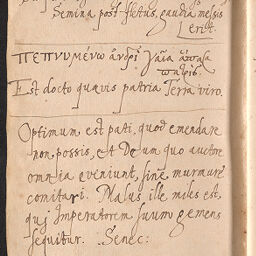 Semina post fletus, gaudia messis
erit.
πεπνυμένω ἀνδρὶ γαῖα ἅπασα
πατρίς.
Est docto quævis patria Terra viro.
Optimum est pati, quod emendare
non possis, et Deum quo auctore
omnia eveniunt, sine murmure
comitari. Malus ille miles est,
qui Imperatorem suum gemens
sequitur. Senec: